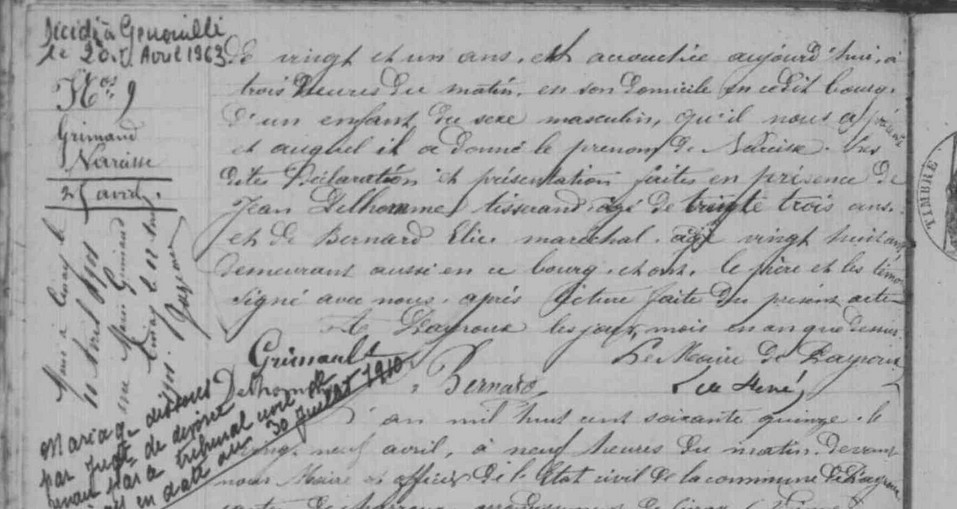 Décédé à Genouillé
le 20 Avril 1963
Nos 9
Grimaud
Narcisse
25 avril
Marié à Civray le
10 Avril 1901
avec Marie
Civray le 12
Mariage dissous
par Jugt de divorce
rendu par le tribunal civil de
en date du 30 Juillet 1910
de vingt et un ans, est accouchée aujourd'hui, à
trois heures du matin, en son domicile en cedit bourg,
d'un enfant du sexe masculin, qu'il nous a présenté
et auquel il a donné le prenom de Narcisse. Les
dites Déclaration et présentation faites en présence de
Jean Delhomme, tisserand âgé de trente trois ans.
et de Bernard Elie, maréchal, âgé vingt huit ans
demeurant aussi en ce bourg. et ont, le père et les témoins
signé avec nous, après lecture faite du présent acte
A Payroux les jour, mois et an que dessus
Grimault
Le Maire de Payroux
Delhomme
Bernard
René
L'an mil huit cent soixante quinze, le
vingt neuf avril, à neuf heures du matin, devant
nous Maire et officier de l'Etat civil de la commune de Payroux
TIMBRE